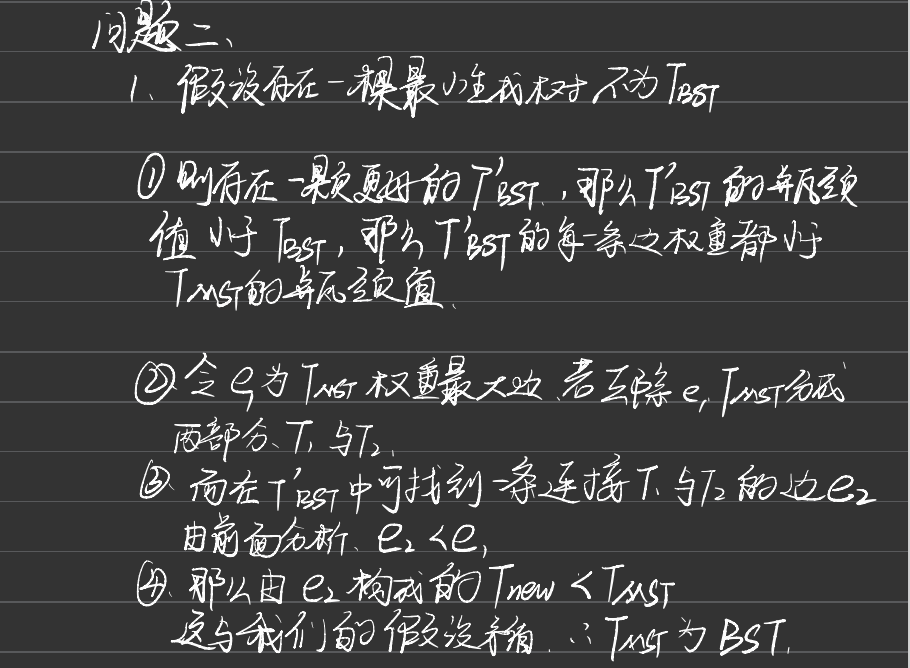 问题二、
1、假设存在一棵最小生成树不为TBST
① 则存在一颗更好的T'BST，那么T'BST的瓶颈
值小于TBST，那么T'BST的每一条边权重都小于
TMST的瓶颈值.
②令e₁为TMST权重最大边,若去除e₁TMST分成
两部分、T₁与T₂.
③ 而在T'BST中可找到一条连接T₁与T₂的边e₂
由前面分析、e₂<e₁
④. 那么由e₂构成的Tnew<TMST
这与我们的假设矛盾.∴TMST为BST.